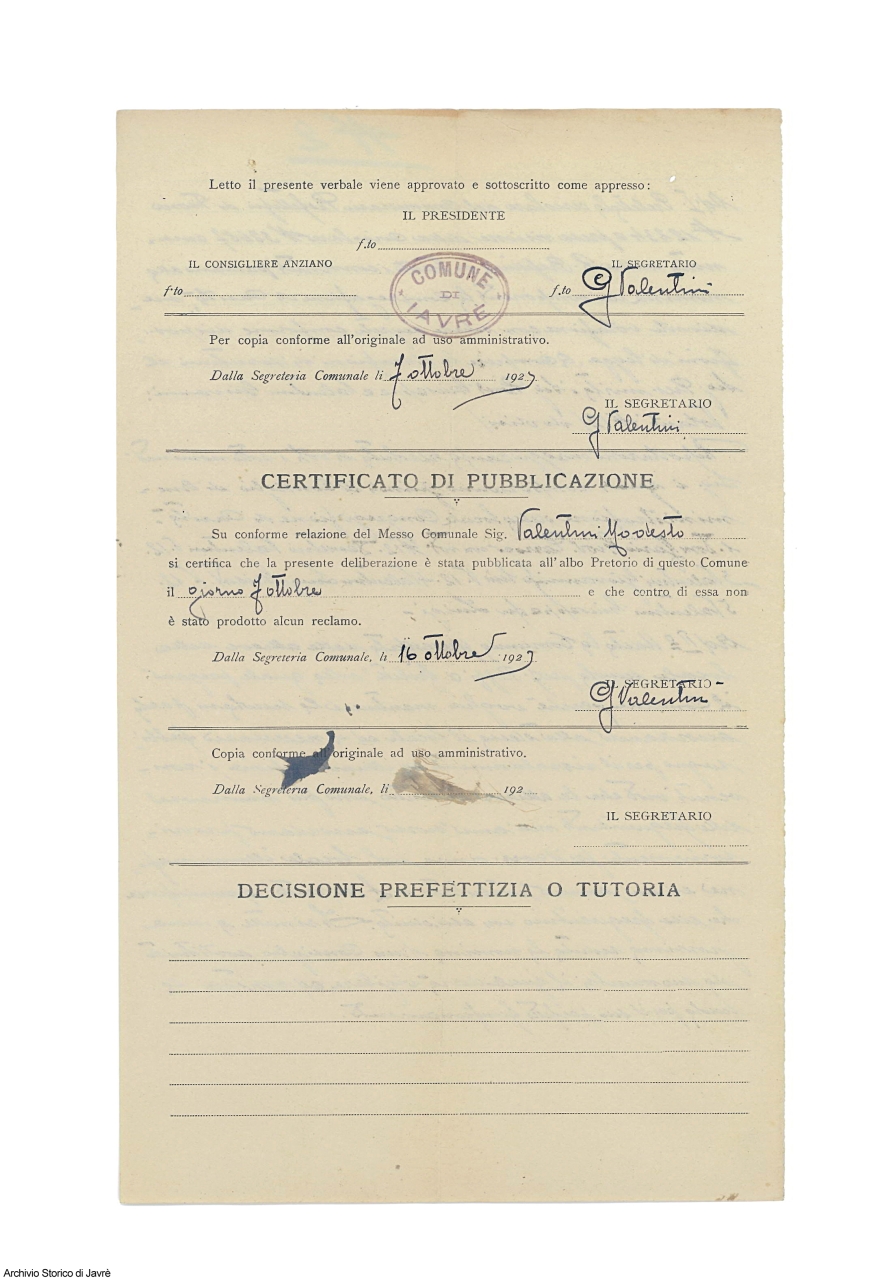 Letto il presente verbale viene approvato e sottoscritto come appresso:
IL PRESIDENTE
f.to
IL CONSIGLIERE ANZIANO
IL SEGRETARIO
f.to
f.to G Valentini
COMUNE
DI
JAVRÈ
Per copia conforme all'originale ad uso amministrativo.
Dalla Segreteria Comunale li 7 ottobre 1927
IL SEGRETARIO
G Valentini
CERTIFICATO DI PUBBLICAZIONE
Su conforme relazione del Messo Comunale Sig. Valentini Modesto
si certifica che la presente deliberazione è stata pubblicata all'albo Pretorio di questo Comune
il giorno 7 ottobre e che contro di essa non
è stato prodotto alcun reclamo.
Dalla Segreteria Comunale, li 16 ottobre 1927
IL SEGRETARIO
G Valentini
Copia conforme all'originale ad uso amministrativo.
Dalla Segreteria Comunale, li 192
IL SEGRETARIO
DECISIONE PREFETTIZIA O TUTORIA
Archivio Storico di Javrè